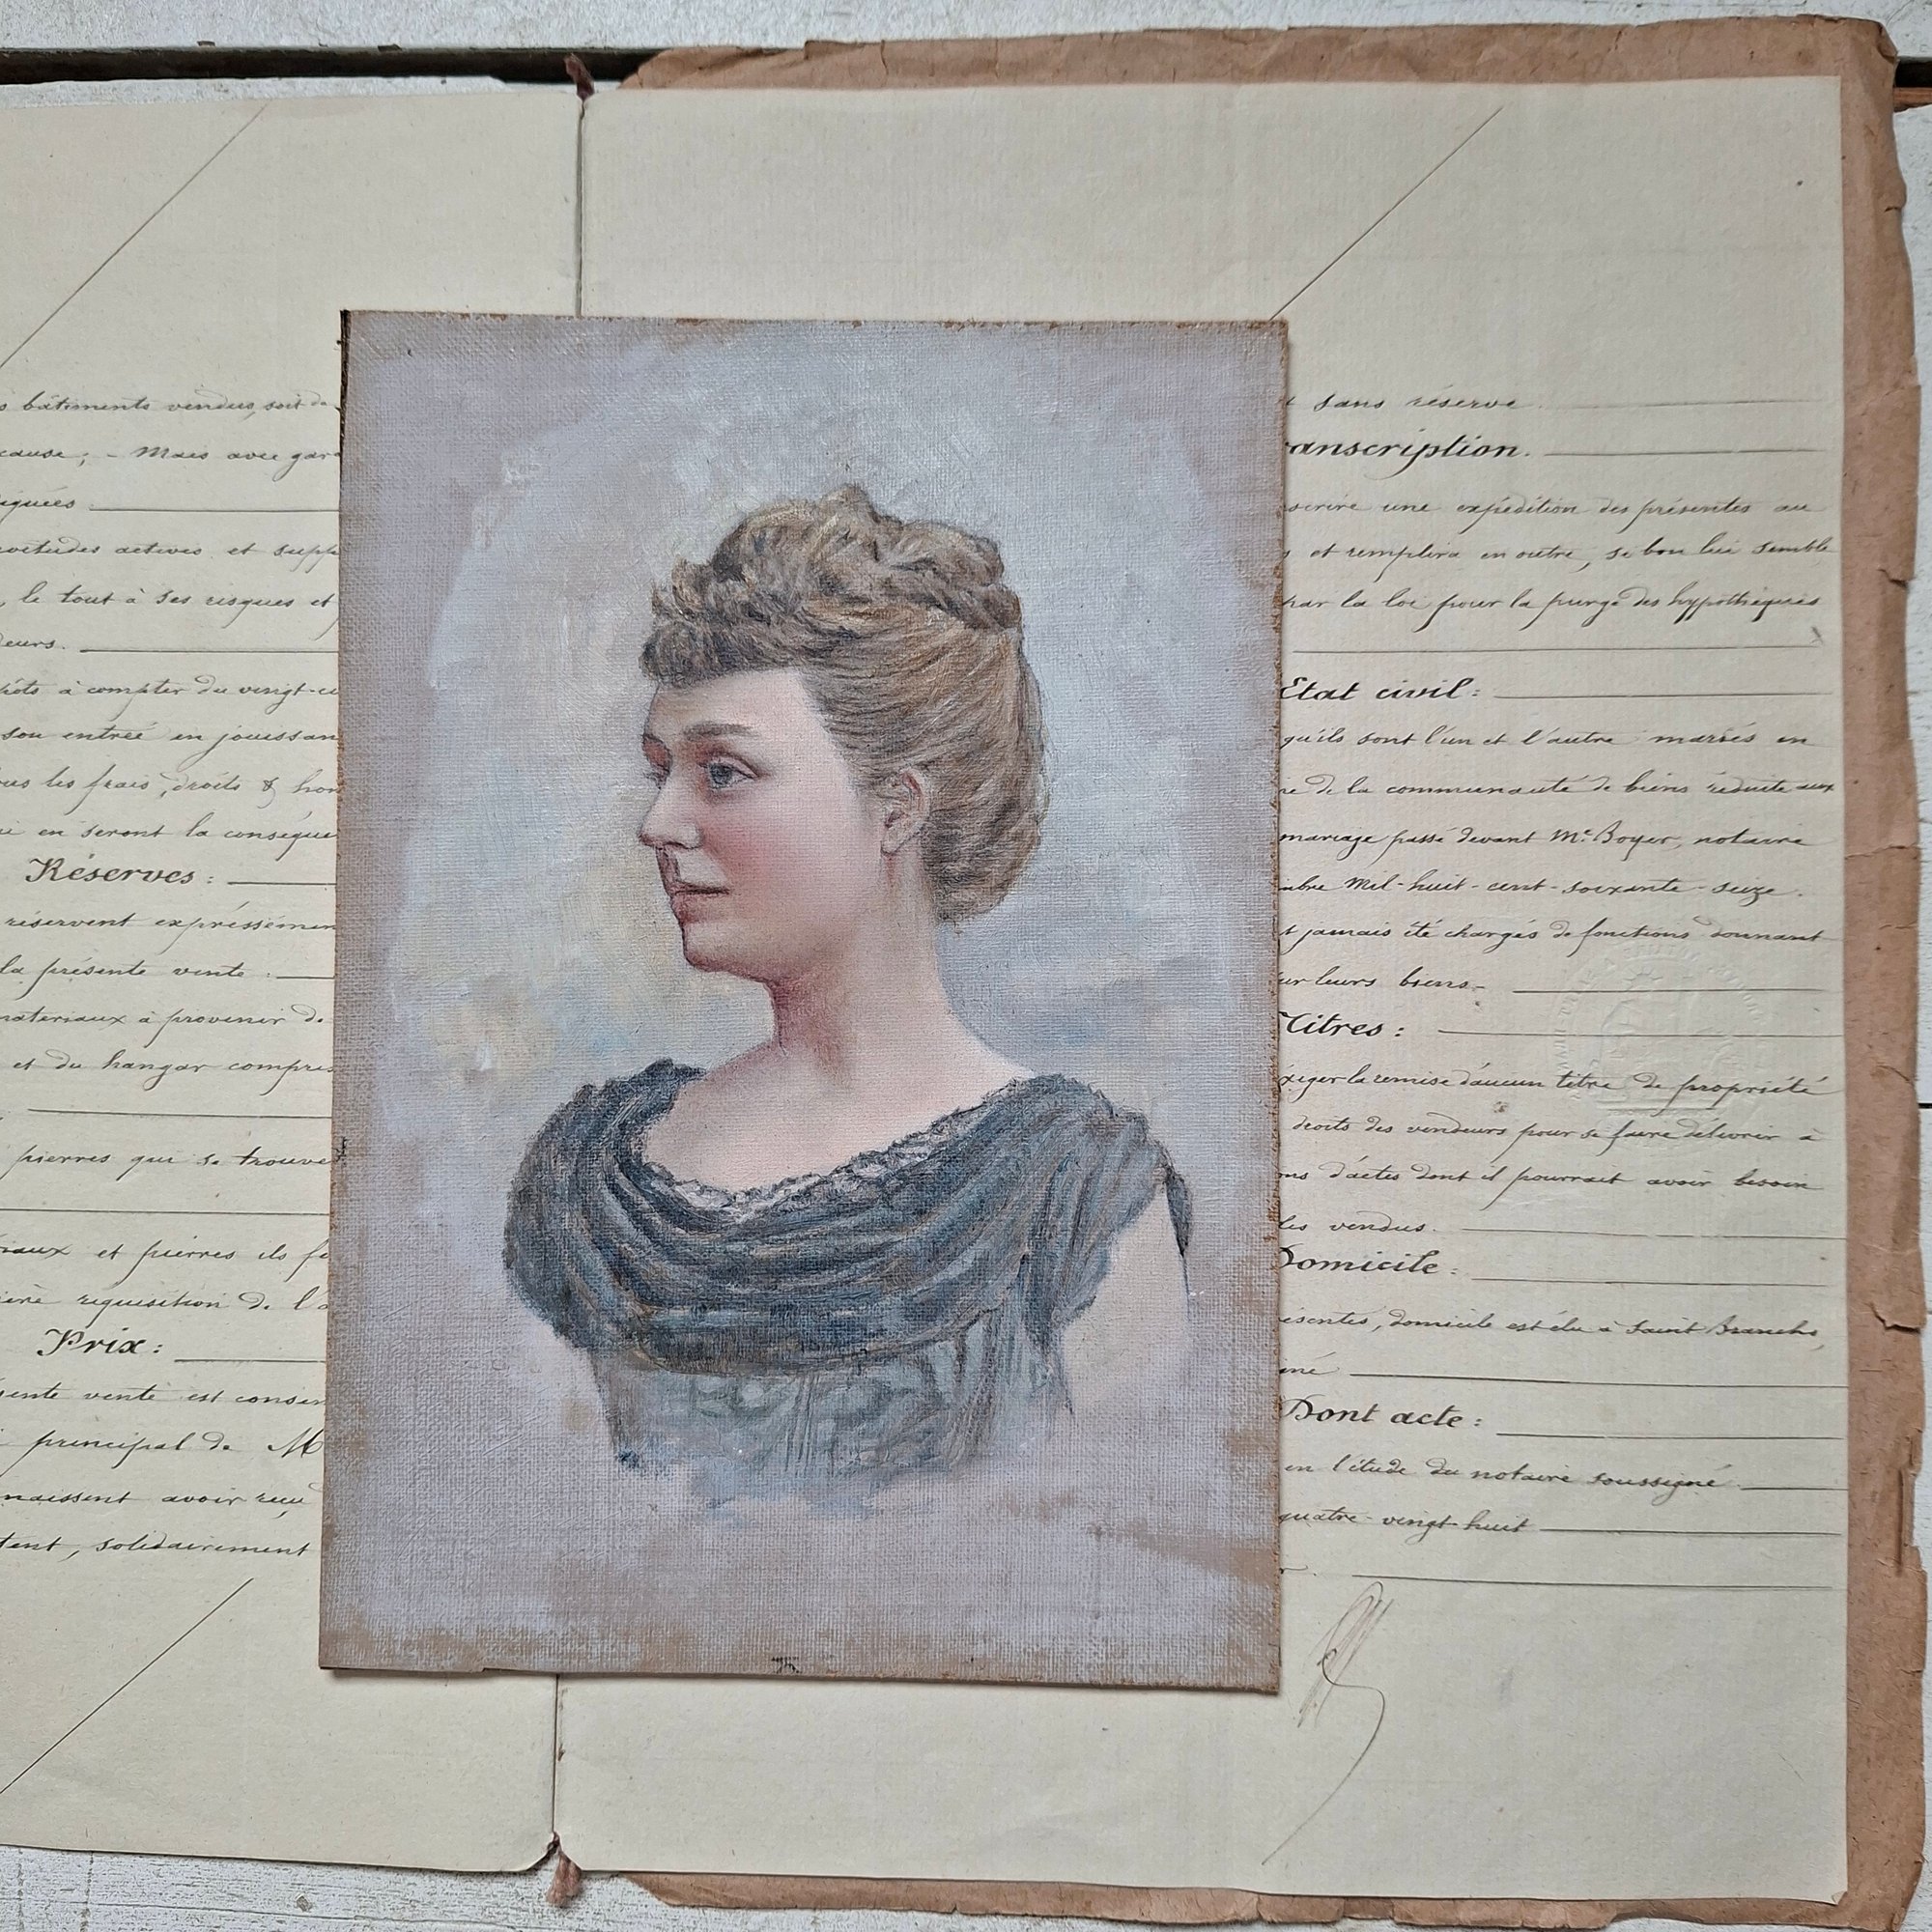 bâtiments vendus, soit de
cause; - Mais avec gar
et supp
, le tout à ses risques et
à compter du vingt-ci
son entrée en jouissan
les frais, droits & hon
en seront la conséque
Réserves:
réservent expressémen
la présente vente:
matériaux à provenir de
et du hangar compris
pierres qui se trouve
et pierres ils
réquisition de l'a
Prix:
vente est consen
principal de M
avoir reçu
solidairement
sans réserve
anscription.
une expédition des présentes au
et remplira en outre, si bon lui semble
par la loi pour la purge des hypothèques
Etat civil:
qu'ils sont l'un et l'autre mariés en
de la communauté de biens réduite aux
mariage passé devant Me Boyer, notaire
mbre mil-huit-cent-soixante-seize.
jamais été chargés de fonctions donnant
leurs biens.
Titres:
exiger la remise d'aucun titre de propriété
droits des vendeurs pour se faire délivrer à
d'actes dont il pourrait avoir besoin
vendus.
Domicile:
ésentes, domicile est élu à Saint Branchs,
Dont acte:
en l'étude du notaire soussigné
quatre-vingt-huit